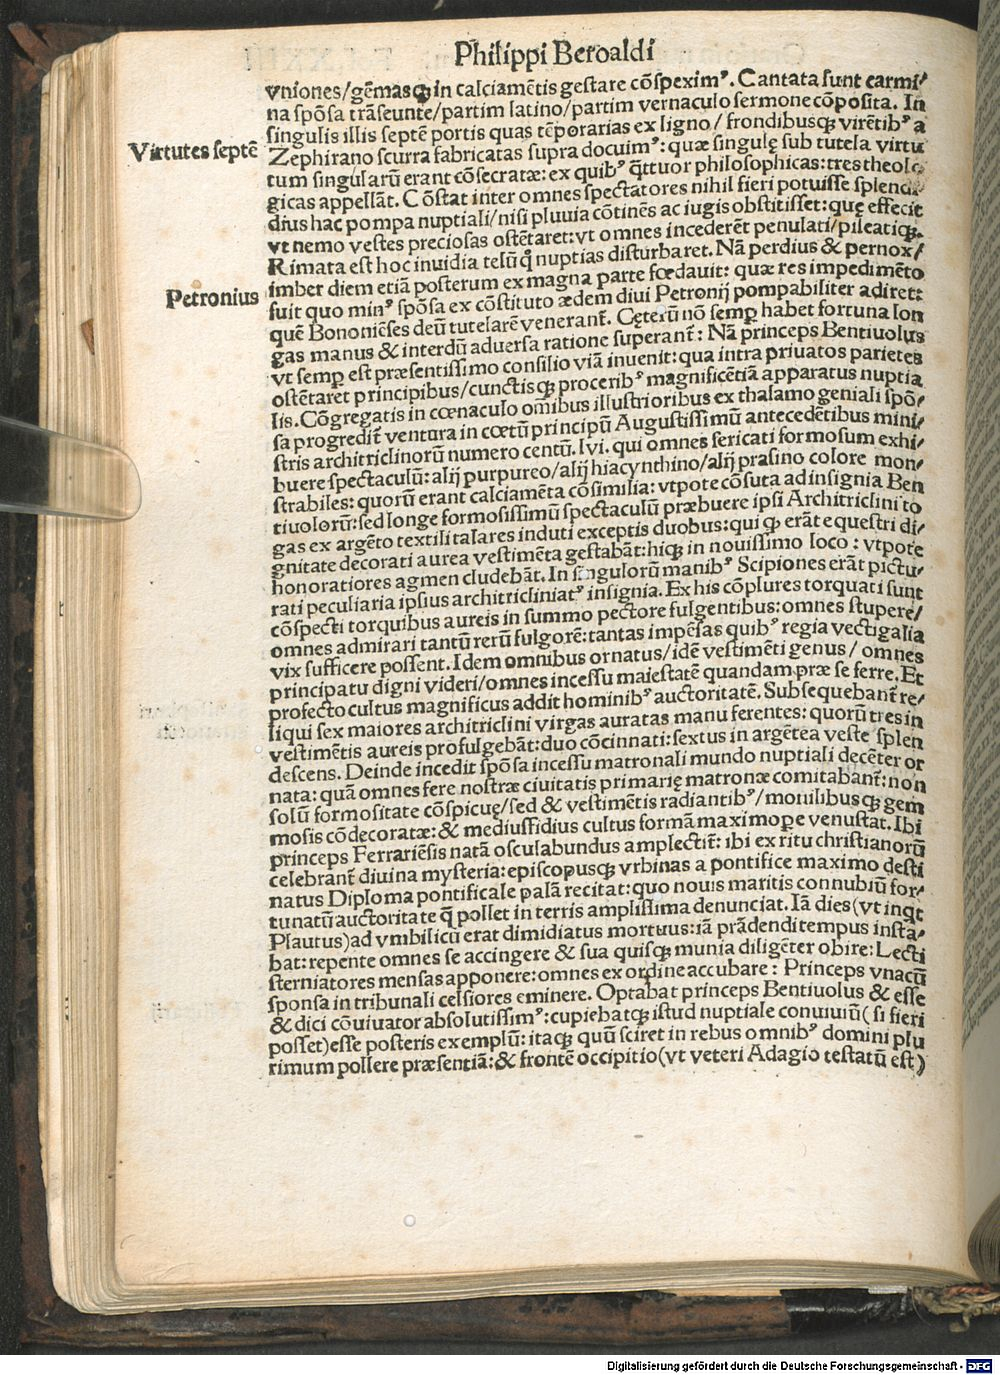 Philippi Beroaldi
vniones/gẽmasqꝫ in calciamẽtis gestare cõspexim⁹. Cantata sunt carmi/
na spõsa trãseunte/partim latino/partim vernaculo sermone cõposita. In
singulis illis septẽ portis quas tẽporarias ex ligno/ frondibusqꝫ virẽtib⁹ a
Virtutes septẽ
Zephirano scurra fabricatas supra docuim⁹: quæ singulę sub tutela virtu
tum singularũ erant cõsecratæ: ex quib⁹ q̃ttuor philosophicas: tres theolo
gicas appellãt. Cõstat inter omnes spectatores nihil fieri potuisse splendi
dius hac pompa nuptiali/nisi pluuia cõtinẽs ac iugis obstitisset: quę effecit
vt nemo vestes preciosas ostẽtaret: vt omnes incederẽt penulati/pileatiqꝫ.
Rimata est hoc inuidia telũ q̊ nuptias disturbaret. Nã perdius & pernox/
imber diem etiã posterum ex magna parte fœdauit: quæ res impedimẽto
Petronius
fuit quo min⁹ spõsa ex cõstituto ædem diui Petronij pompabiliter adiret:
quẽ Bononiẽses deũ tutelarẽ venerant̃. Cęterũ nõ semꝑ habet fortuna lon
gas manus & interdũ aduersa ratione superant̃: Nã princeps Bentiuolus
vt semꝑ est præsentissimo consilio viã inuenit: qua intra priuatos parietes
ostẽtaret principibus/cunctisqꝫ procerib⁹ magnificẽtiã apparatus nuptia
lis. Cõgregatis in cœnaculo om̃ibus illustrioribus ex thalamo geniali spõ/
sa progredit̃ ventura in cœtũ principũ Augustissimũ antecedẽtibus mini/
stris architriclinorũ numero centũ. lvi. qui omnes sericati formosum exhi/
buere spectaculũ: alij purpureo/alij hiacynthino/alij prasino colore mon/
strabiles: quorũ erant calciamẽta cõsimilia: vtpote cõsuta ad insignia Ben
tiuolorũ: sed longe formosissimũ spectaculũ præbuere ipsi Architriclini to
gas ex argẽto textili talares induti exceptis duobus: qui qꝫ erãt equestri di/
gnitate decorati aurea vestimẽta gestabãt: hiqꝫ in nouissimo loco: vtpote
honoratiores agmen cludebãt. In singulorũ manib⁹ Scipiones erãt pictu/
rati peculiaria ipsius architricliniat⁹ insignia. Ex his cõplures torquati sunt
cõspecti torquibus aureis in summo pectore fulgentibus: omnes stupere/
omnes admirari tantũ rerũ fulgorẽ: tantas impẽsas quib⁹ regia vectigalia
vix sufficere possent. Idem omnibus ornatus/idẽ vestimẽti genus/ omnes
principatu digni videri/omnes incessu maiestatẽ quandam præ se ferre. Et
profecto cultus magnificus addit hominib⁹ auctoritatẽ. Subsequebant̃ re/
liqui sex maiores architriclini virgas auratas manu ferentes: quorũ tres in
vestimẽtis aureis profulgebãt: duo cõcinnati: sextus in argẽtea veste splen
descens. Deinde incedit spõsa incessu matronali mundo nuptiali decẽter or
nata: quã omnes fere nostræ ciuitatis primarię matronæ comitabant̃: non
solũ formositate cõspicuę/sed & vestimẽtis radiantib⁹/monilibusqꝫ gem
mosis cõdecoratæ: & mediusfidius cultus formã maximoꝑe venustat. Ibi
princeps Ferrariẽsis natã osculabundus amplectit̃: ibi ex ritu christianorũ
celebrant̃ diuina mysteria: episcopusqꝫ vrbinas a pontifice maximo desti
natus Diploma pontificale palã recitat: quo nouis maritis connubiũ for/
tunatũ auctoritate q̃ pollet in terris amplissima denunciat. Iã dies(vt inqt
Plautus)ad vmbilicũ erat dimidiatus mortuus: iã prãdendi tempus insta/
bat: repente omnes se accingere & sua quisqꝫ munia diligẽter obire: Lecti
sterniatores mensas apponere: omnes ex ordine accubare: Princeps vnacũ
sponsa in tribunali celsiores eminere. Optabat princeps Bentiuolus & esse
& dici cõuiuator absolutissim⁹: cupiebatqꝫ istud nuptiale conuiuiũ( si fieri
posset)esse posteris exemplũ: itaqꝫ quũ sciret in rebus omnib⁹ domini plu
rimum pollere præsentiã: & frontẽ occipitio(vt veteri Adagio testatũ est)
Digitalisierung gefördert durch die Deutsche Forschungsgemeinschaft - DFG